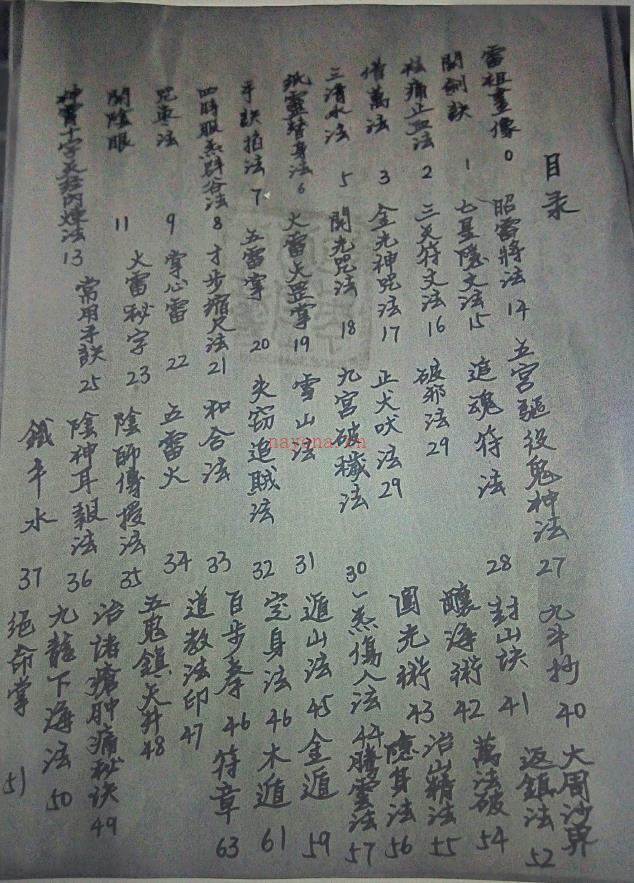 目录
雷祖畫像 0
開劍訣 1
祛痛止血法 2
借萬法 3
三清水法 5
紙靈替身法 6
手訣掐法 7
四時服炁辟谷法 8
咒棗法 9
開陰眼 11
十字天经内煉法 13
昭雷將法 14
七星隱文法 15
三爻符文法 16
金光神咒法 17
開光咒法 18
火雷大罡掌 19
五雷掌 20
才步縮尺法 21
掌心雷 22
火雷秘字 23
常用手訣 25
五宮驅役鬼神法 27
追魂符法 28
破邪法 29
正犬吠法 29
九宮破穢法 30
雪山法 31
失窃追賊法 32
和合法 33
五雷火 34
陰師傳授法 35
陰神耳報法 36
鐵牛水 37
九斗抄 40
封山诀 41
釀海術 42
圓光術 43
一炁傷人法 44
遁山法 45
定身法 46
百步拳 46
道教法印 47
五鬼鎮天井 48
治諸瘡肿痛秘诀 49
九龍下海法 50
绝命掌 51
大周沙界
返鎮法 52
萬法破 54
治山精法 55
隱身法 56
騰雲法 57
金遁 59
木遁 61
符章 63
nayona.cn